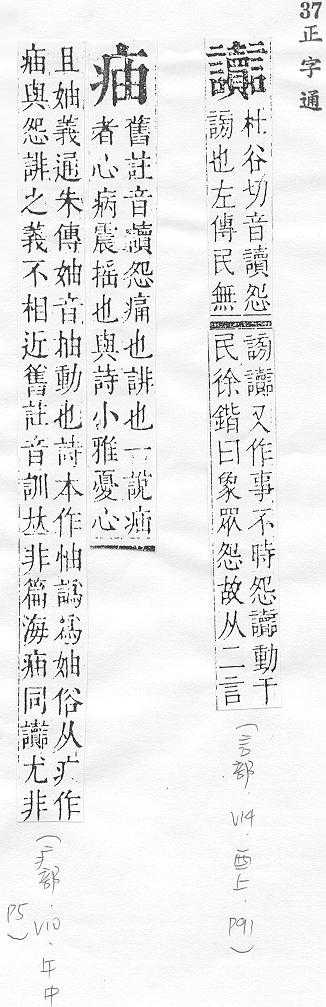 37正字通
讟
杜谷切音讀怨
謗也左傳民無
謗讟又作事不時怨讟動于
民徐鍇曰象眾怨故从二言
(言部.V14.酉上.P91)
㾄
舊註音讀怨痛也誹也一說㾄
者心病震搖也與詩小雅憂心
且妯義通朱傳妯音抽動也詩本作怞譌爲妯俗从疒作
㾄與怨誹之義不相近舊註音訓𠀤非篇海㾄同讟尤非
(疒部.V10.午中
P5)